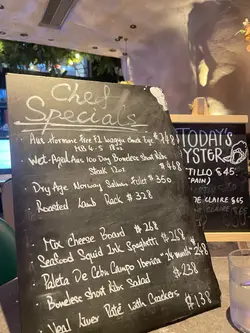 Chef
Specials
Aus Hormone Free F1 Wagyu Black Tye $268
M5
Wet-Aged Aus 100 Day Boneless Short Ribs $468
Steak 12oz
Dry Age Norway Salmon Fillet $350
Roasted Lamb Rack $328
Mix Cheese Board $268
Seafood Squid Ink Spaghetti $268
Paleta De Cebu Campo Iberico 24 month $248
Boneless Short Ribs Salad $238
Veal Liver Paté with Crackers $138
TODAY'S
OYSTER
TILLO $45
DE CLAIRE $65